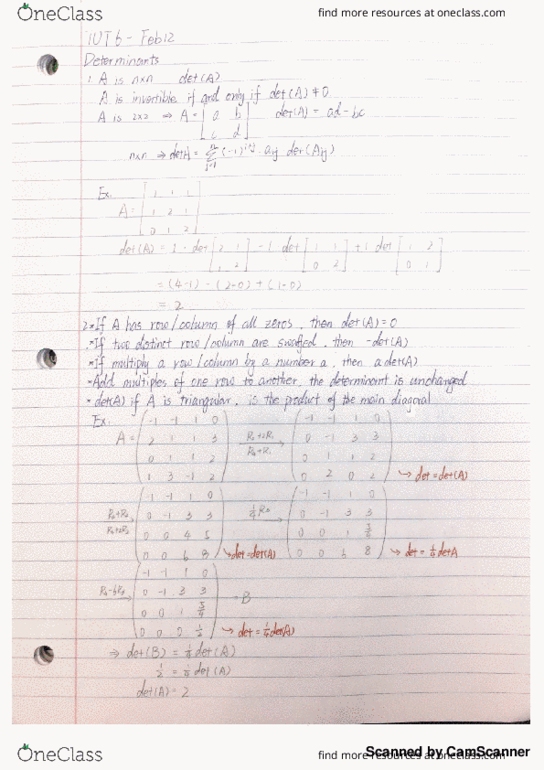 OneClass
find more resources at oneclass.com
TUT 6 - Feb 12
Determinants
1. A is nxn det(A)
A is invertible if and only if det(A) ≠ 0
A is 2x2 ⇒ A = [a b
c d] det(A) = ad - bc
nxn ⇒ det(A) = Σ (-1)^(i+j) aij det(Aij)
j=1
Ex.
A = [1 1 1
1 2 1
0 1 2]
det(A) = 1 · det [2 1
1 2] - 1 det [1 1
0 2] + 1 det [1 2
0 1]
= (4-1) - (2-0) + (1-0)
= 2
2 • If A has row/column of all zeros, then det(A) = 0
• If two distinct row/column are swapped, then -det(A)
• If multiply a row/column by a number a, then a det(A)
• Add multiples of one row to another, the determinant is unchanged
• det(A) if A is triangular, is the product of the main diagonal
Ex.
A = (-1 -1 1 0
2 1 1 3
0 1 1 2
1 3 -1 2) R2+2R1
R4+R1 (-1 -1 1 0
0 -1 3 3
0 1 1 2
0 2 0 2) → det = det(A)
R3+R2
R4+2R2 (-1 -1 1 0
0 -1 3 3
0 0 4 5
0 0 6 8) → det = det(A)
¼R3 (-1 -1 1 0
0 -1 3 3
0 0 1 5/4
0 0 6 8) → det = ¼ det A
R4-6R3 (-1 -1 1 0
0 -1 3 3
0 0 1 5/4
0 0 0 ½) = B → det = ¼ det(A)
⇒ det(B) = ¼ det(A)
½ = ¼ det(A)
det(A) = 2
OneClass
find more resources at oneclass.com
Scanned by CamScanner